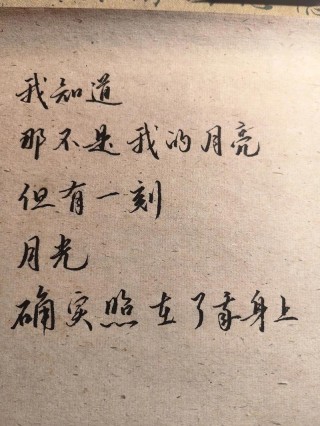 我知道
那不是我的月亮
但有一刻
月光
确实照在了我身上